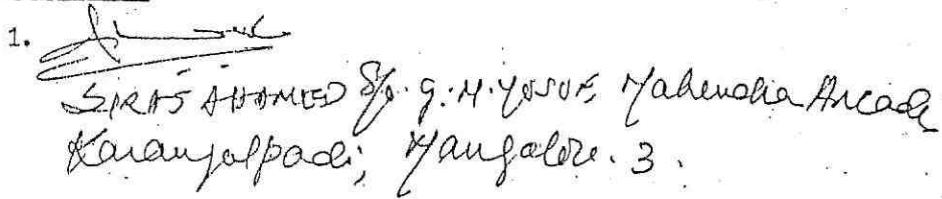 1.
SIRAJ AHAMED S/o. G.M. YUSUF, Mahendra Arcade
Karangalpadi, Mangalore. 3.